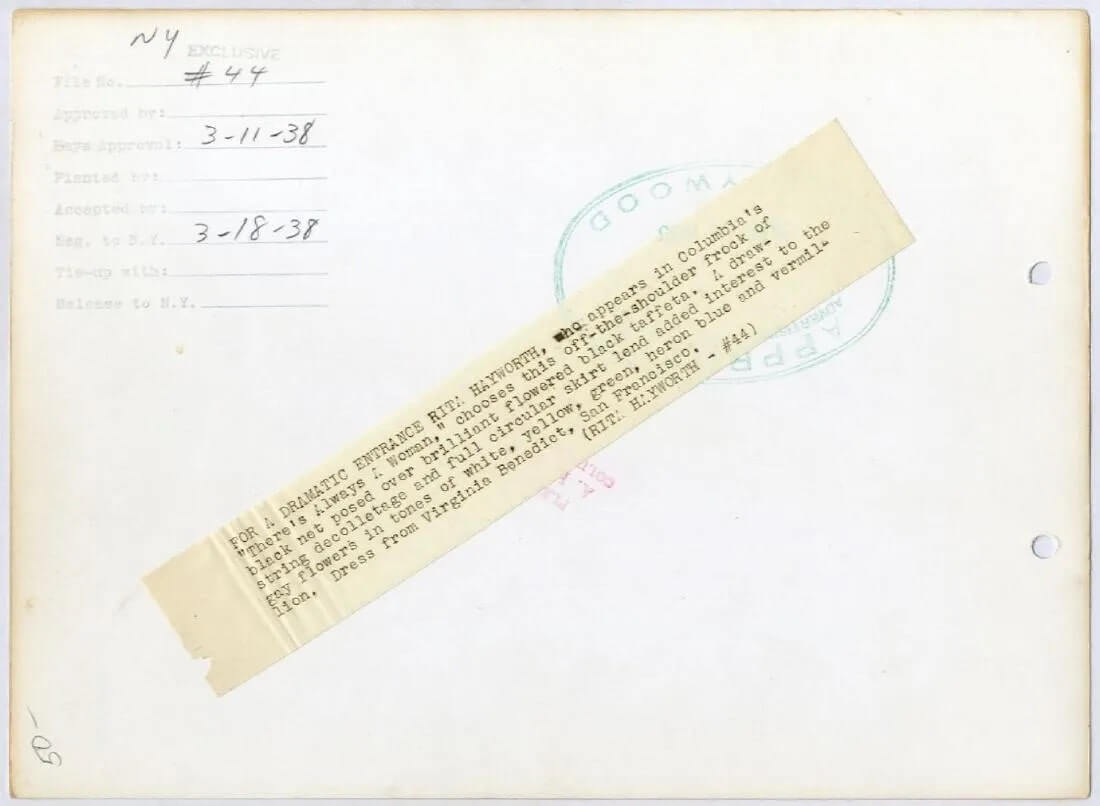 NY
EXCLUSIVE
File No. #44
Approved by:
Hays Approval: 3-11-38
Planted by:
Accepted by:
Neg. to N.Y. 3-18-38
Tie-up with:
Release to N.Y.
FOR A DRAMATIC ENTRANCE RITA HAYWORTH, who appears in Columbia's
"There's Always A Woman," chooses this off-the-shoulder frock of
black net posed over brilliant flowered black taffeta. A draw-
string decolletage and full circular skirt lend added interest to the
gay flowers in tones of white, yellow, green, heron blue and vermil-
lion. Dress from Virginia Benedict, San Francisco.
(RITA HAYWORTH - #44)
50-